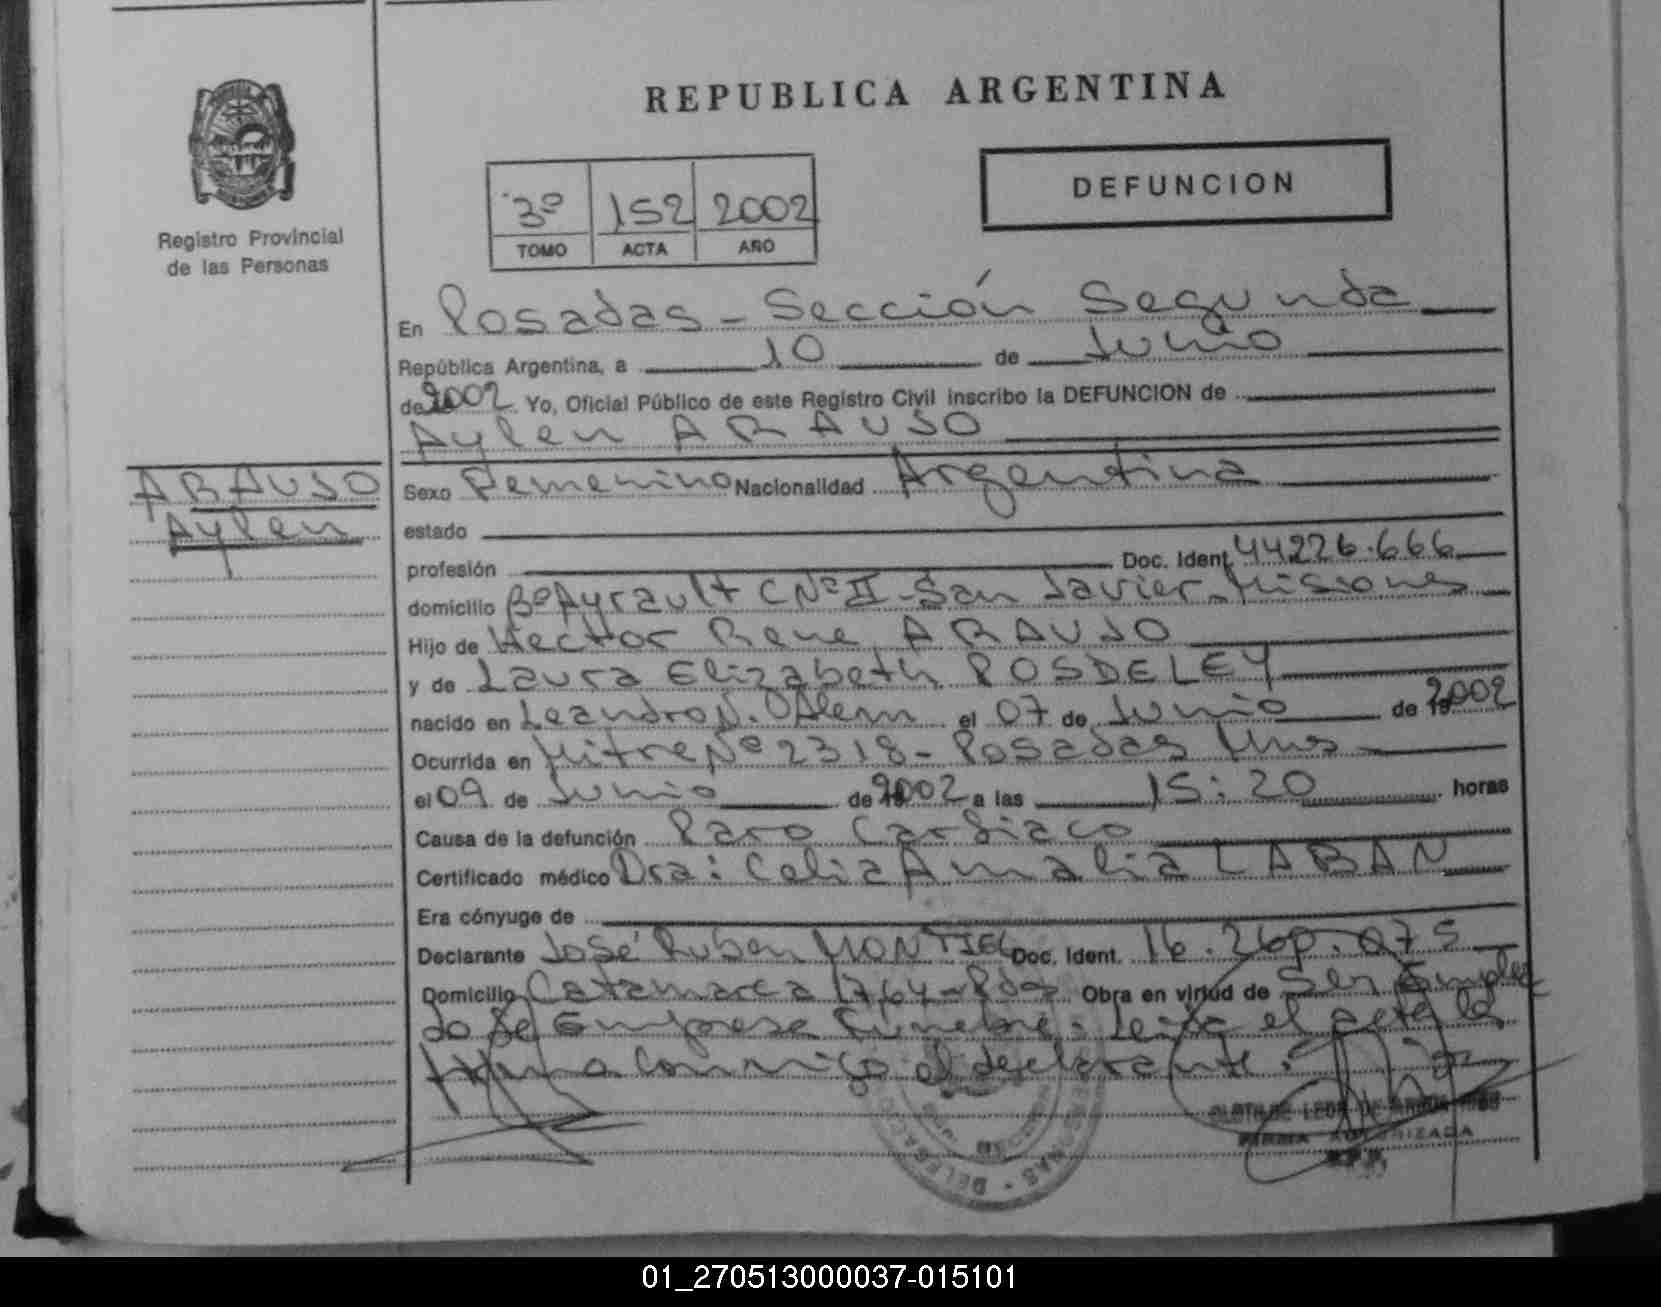 REPUBLICA ARGENTINA
Registro Provincial
de las Personas
3º 152 2002
TOMO ACTA AÑO
DEFUNCION
En Posadas - Sección Segunda
República Argentina, a 10 de Junio
de 2002. Yo, Oficial Público de este Registro Civil inscribo la DEFUNCION de
Aylen ARAUSO
ARAUSO
Aylen
Sexo Femenino Nacionalidad Argentina
estado
profesión Doc. Ident. 44226.666
domicilio Bº Ayrault CNº II - San Javier - Misiones
Hijo de Hector Rene ARAUSO
y de Laura Elizabeth POSDELEY
nacido en Leandro N. Alem el 07 de Junio de 2002
Ocurrida en Mitre Nº 2318 - Posadas Mns
el 09 de Junio de 2002 a las 15:20 horas
Causa de la defunción Paro Cardiaco
Certificado médico Dra: Celia Amalia LABAN
Era cónyuge de
Declarante José Ruben MONTIEL Doc. Ident. 16.260.075
Domicilio Catamarca 1764 - Pdas Obra en virtud de Ser Emplea
do de Empresa Funebre. Leida el acta la
firma conmigo el declarante.
FIRMA AUTORIZADA
01_270513000037-015101